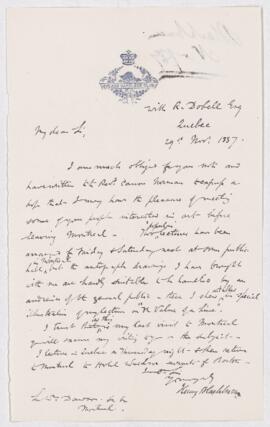 With R. Dobell Esq
Quebec
29th Nov. 1887.
My dear Sir,
I am much obliged for your note and
have written to the Revd. Canon Norman to express a
hope that I may have the pleasure of meeting
some of your people interested in art before
leaving Montreal. Two popular lectures have been
arranged for Friday & Saturday next at some public
hall, in Montreal but the autograph drawings I have brought
with me are hardly suitable to be handled by an
audience of the general public - there I show also in special
illustration of my lecture on the Value of a Line.
I trust that as this is my last visit to Montreal
you will excuse my on the subject.
I lecture in Quebec on Thursday night - & then return
to Montreal to Hotel Windsor
Yours truly
Henry Blackburn
Sir Wm Dawson
Montreal.